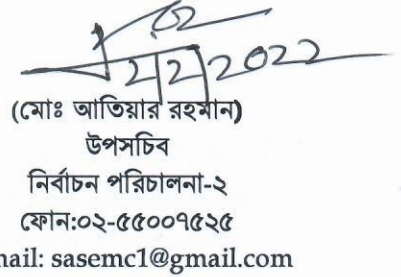 ২/২/২০২২
(মোঃ আতিয়ার রহমান)
উপসচিব
নির্বাচন পরিচালনা-২
ফোন:০২-৫৫০০৭৫২৫
mail: sasemc1@gmail.com